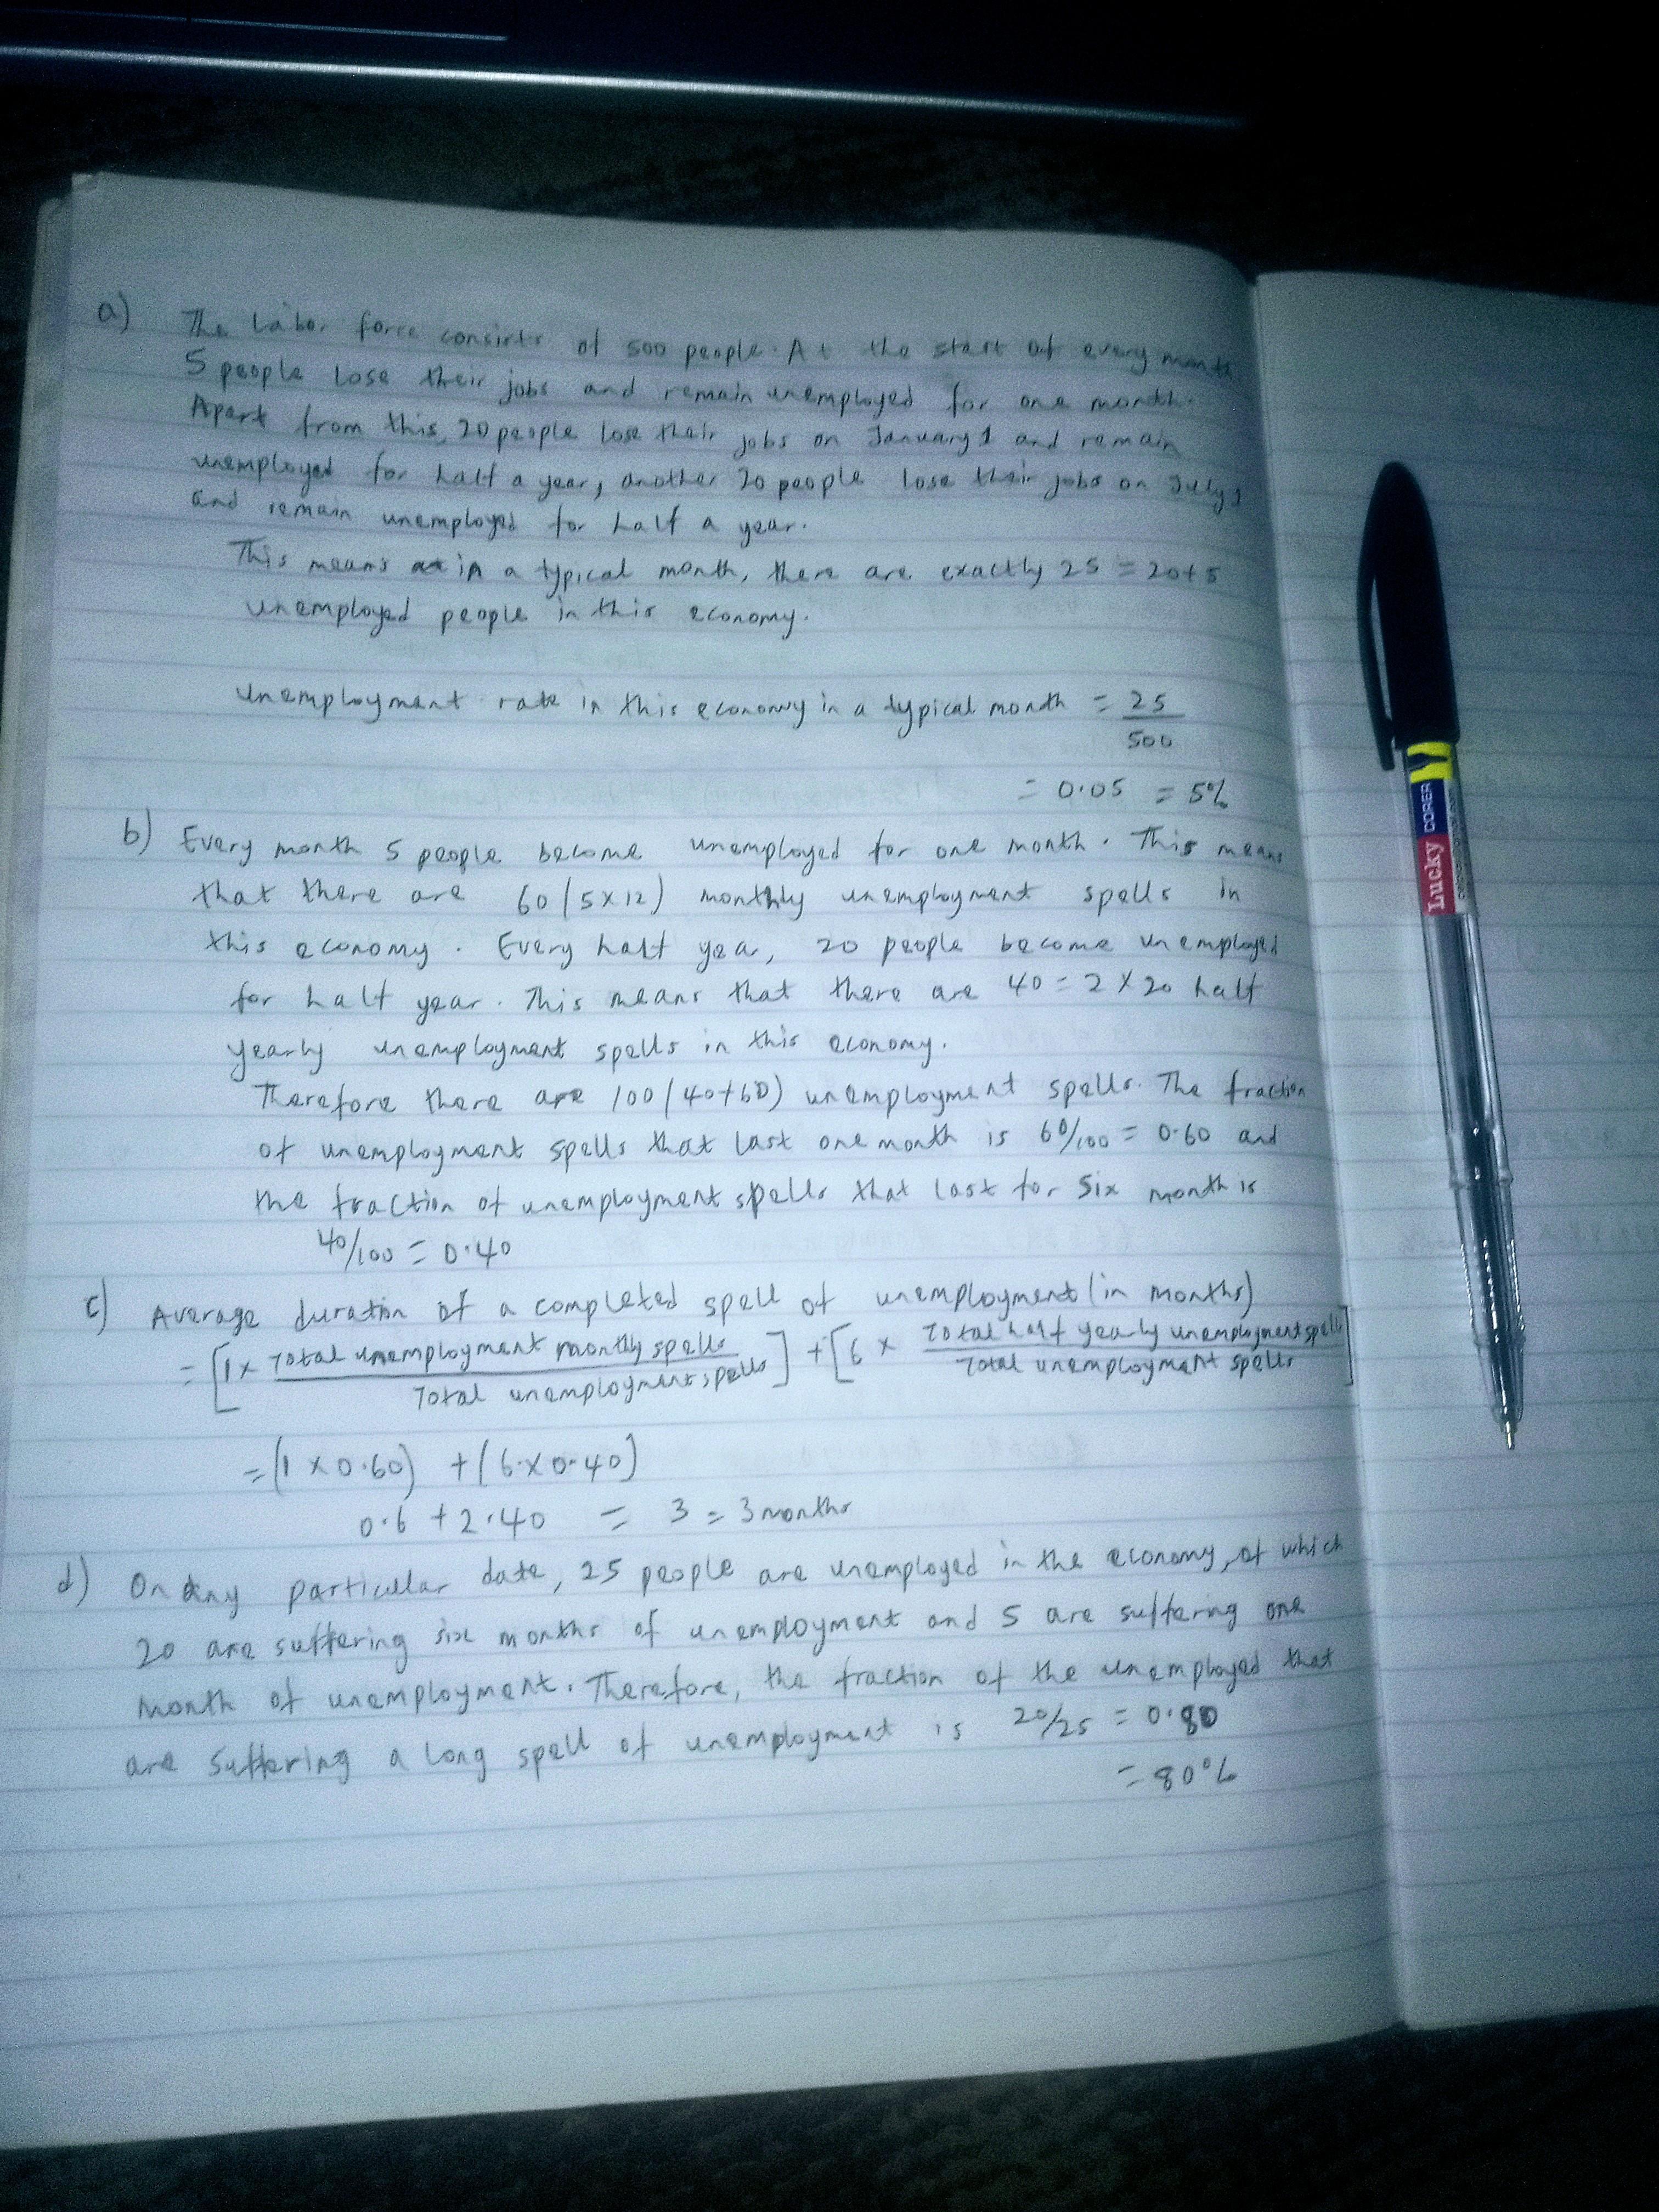 a) The Labor force consists of 500 people. At the start of every month
5 people lose their jobs and remain unemployed for one month.
Apart from this, 20 people lose their jobs on January 1 and remain
unemployed for half a year, another 20 people lose their jobs on July 1
and remain unemployed for half a year.
This means in a typical month, there are exactly 25 = 20+5
unemployed people in this economy.
unemployment rate in this economy in a typical month = 25
500
= 0.05 = 5%
b) Every month 5 people become unemployed for one month. This means
that there are 60 (5x12) monthly unemployment spells in
this economy. Every half year, 20 people become unemployed
for half year. This means that there are 40 = 2 x 20 half
yearly unemployment spells in this economy.
Therefore there are 100 (40+60) unemployment spells. The fraction
of unemployment spells that last one month is 60/100 = 0.60 and
the fraction of unemployment spells that last for six month is
40/100 = 0.40
c) Average duration of a completed spell of unemployment (in months)
= [1 x Total unemployment monthly spells / Total unemployment spells] + [6 x Total half yearly unemployment spells / Total unemployment spells]
= (1 x 0.60) + (6 x 0.40)
0.6 + 2.40 = 3 = 3 months
d) On any particular date, 25 people are unemployed in the economy, of which
20 are suffering six months of unemployment and 5 are suffering one
month of unemployment. Therefore, the fraction of the unemployed that
are suffering a long spell of unemployment is 20/25 = 0.80
= 80%
Lucky CORER